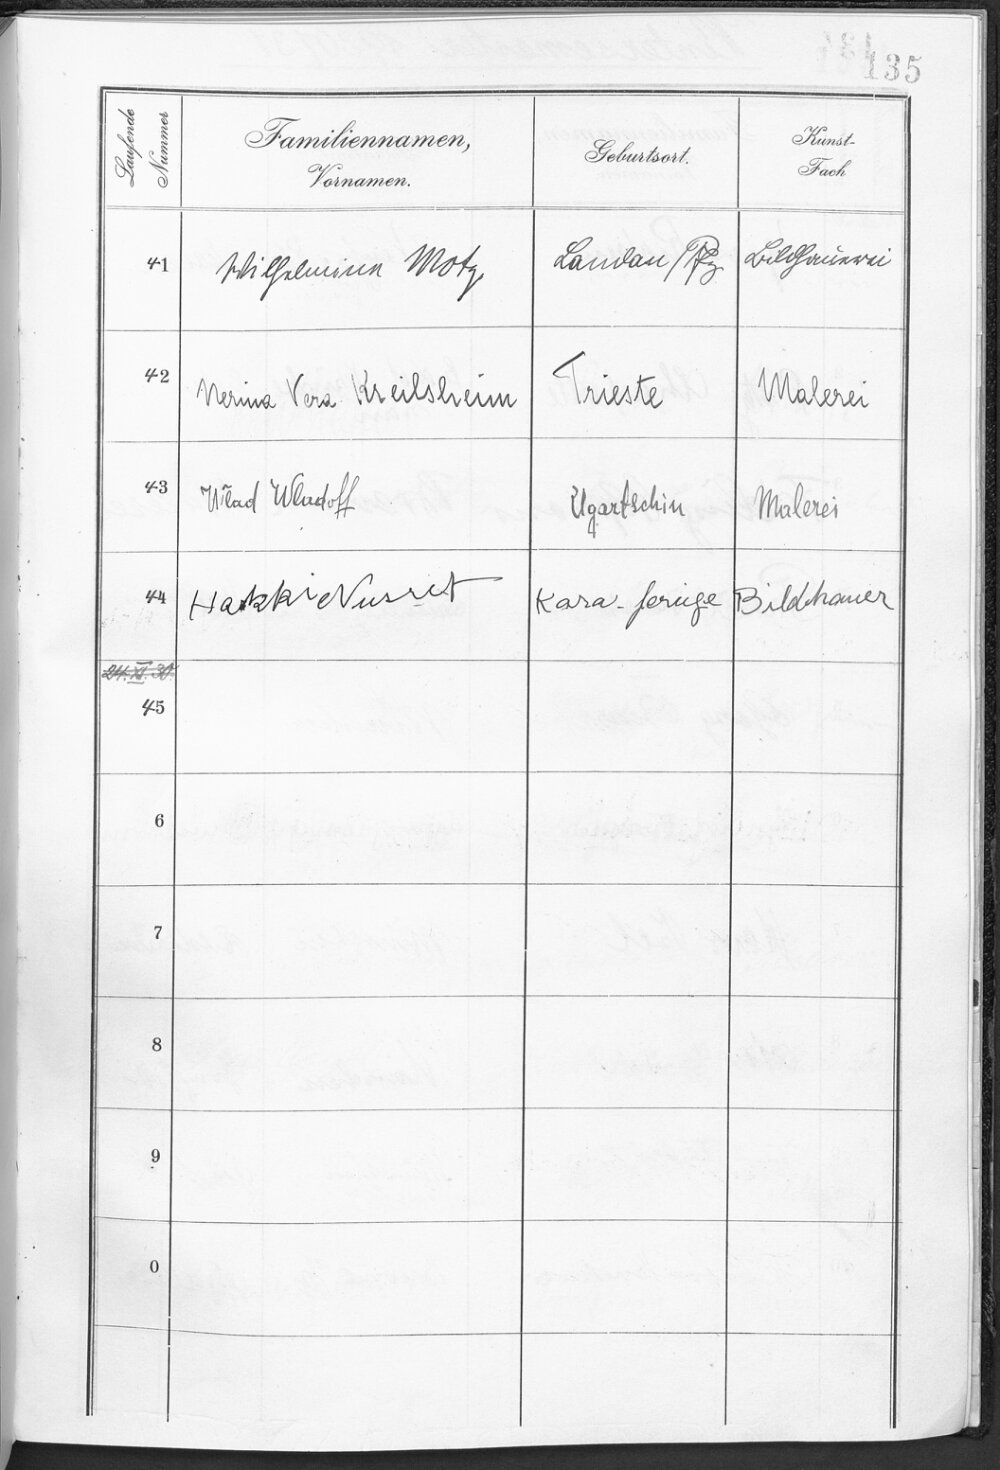 135
Laufende Nummer
Familiennamen,
Vornamen.
Geburtsort.
Kunst-
Fach
41 Wilhelmine Motz Landau/Pfz Bildhauerei
42 Nerina Vera Kreilsheim Trieste Malerei
43 Wlad Wladoff Ugartschin Malerei
44 Hakki Nusret Kara-feruge Bildhauer
24.XI.30.
45
6
7
8
9
0